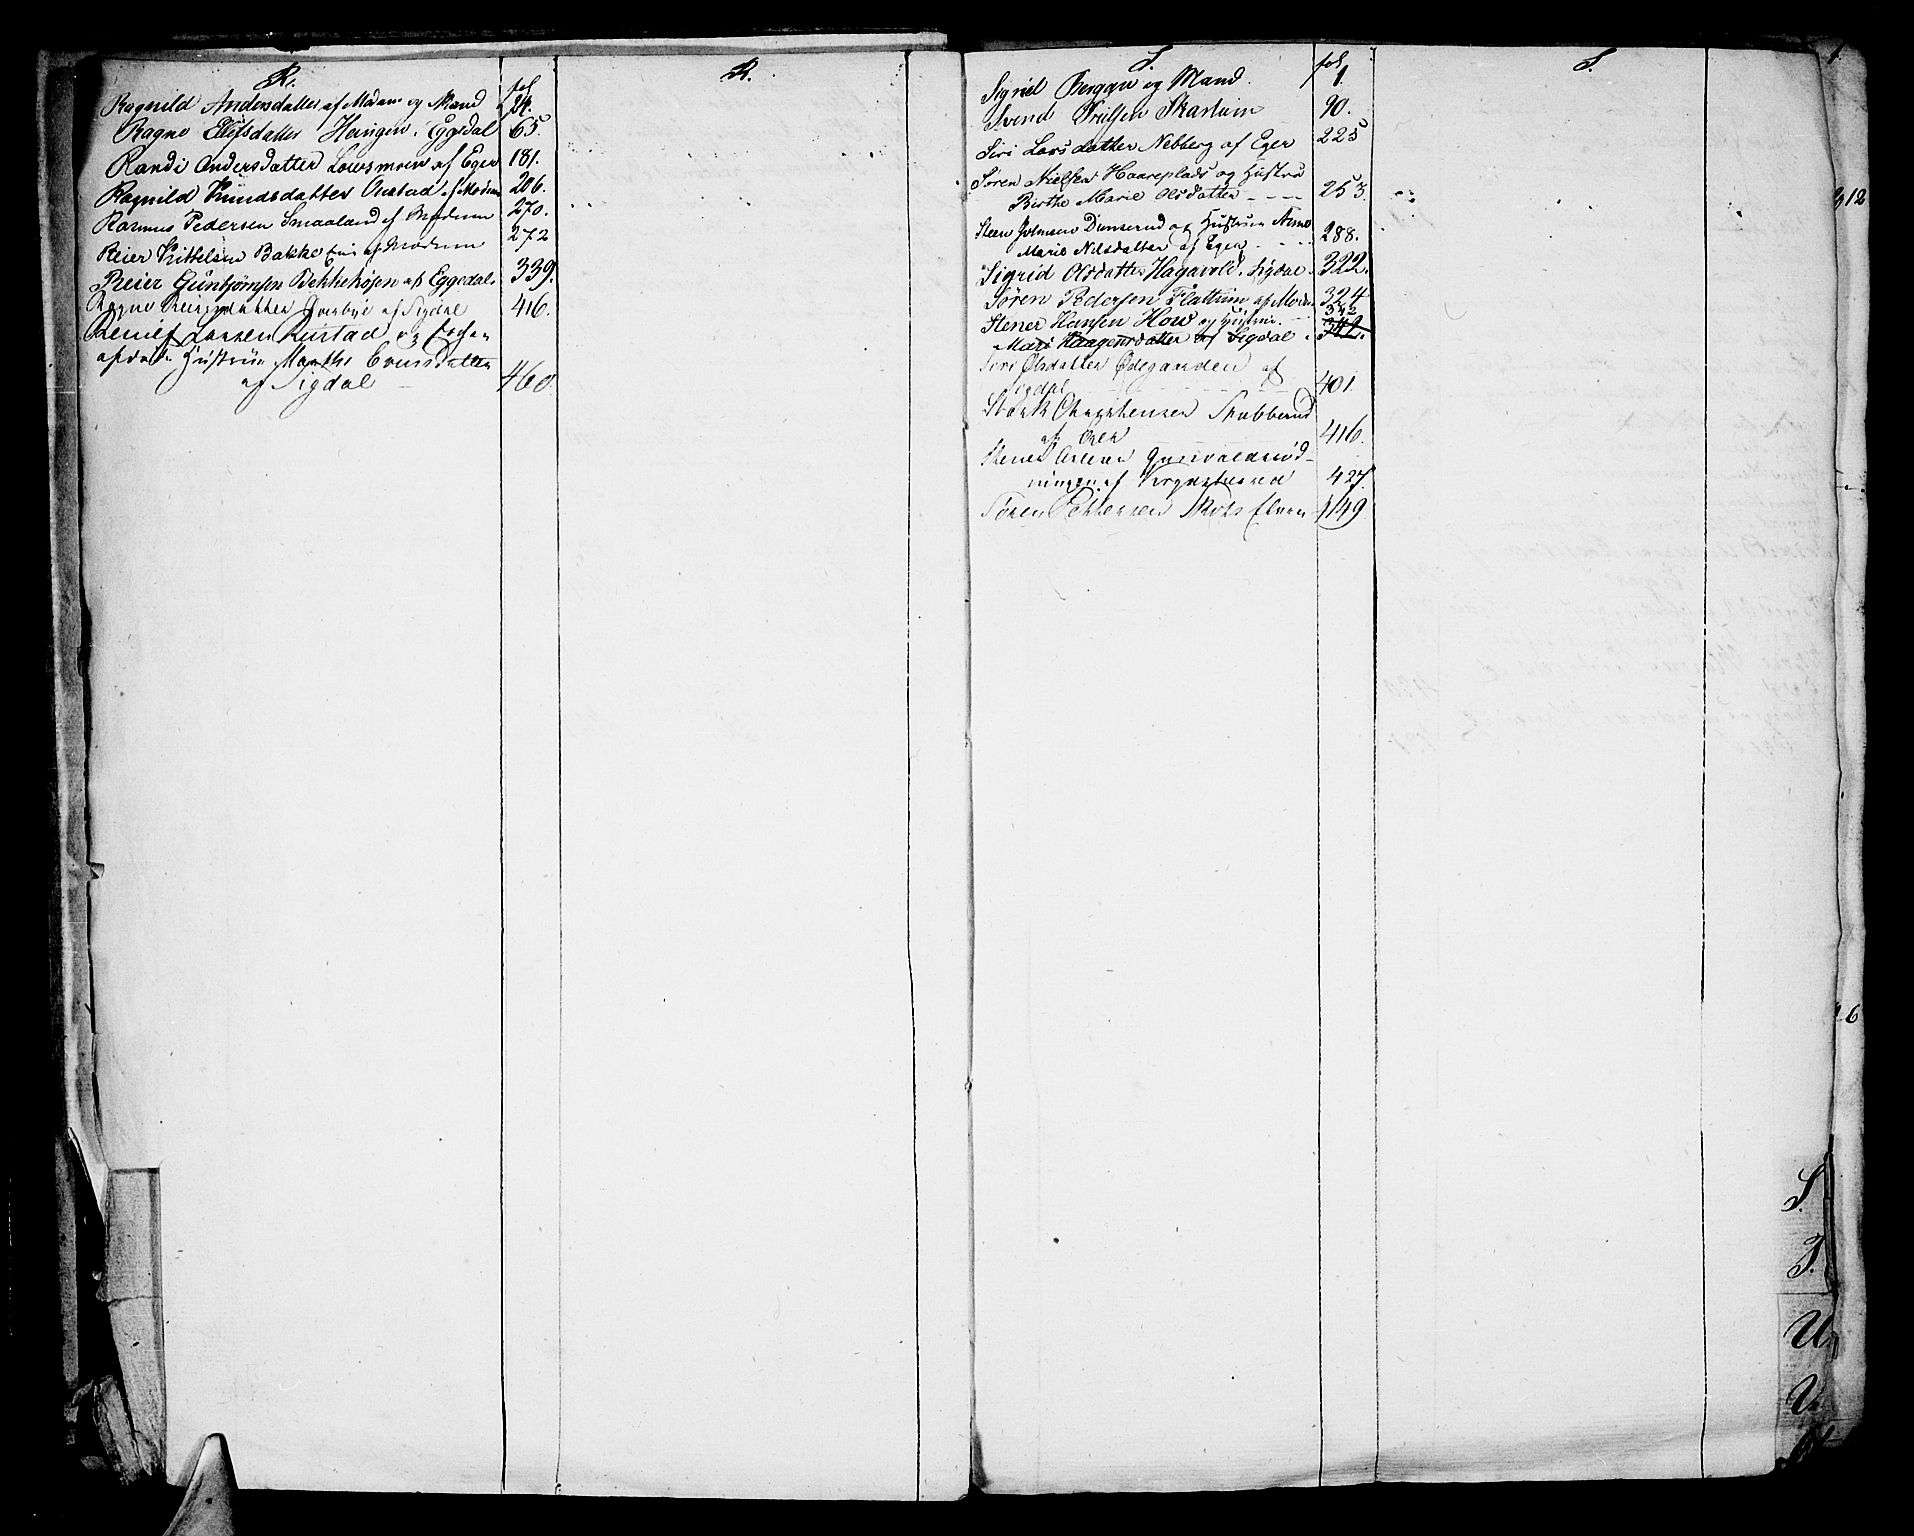 R.
fol
Ragnild Andersdatter af Modum og Mand 24.
Ragne Elefsdatter Haugen i Eggedal 65.
Randi Andersdatter af Eger 181.
Ragnild Knudsdatter af Modum 206.
Rasmus Pedersen Smaaland af Modum 270.
Reier Kittelsen Bakke Eie af Modum 272
Reier Gunbjørnsen Bekkehøjen af Eggedal 339.
Ragne Reiersdatter af Sigdal 416.
Larsen Rustad og
Hustrue Marthe Evensdatter
af Sigdal 460.
R.
S.
fol
Sigrid og Mand. 1.
Svend Skartum 90.
Siri Larsdatter Nebberg af Eger 225
Søren Nielsen Haareplads og Hustru
Birthe Marie Olsdatter 253.
Steen Johnsen Dunserud og Hustrue Anne
Marie Nilsdatter af Eger 288.
Sigrid Olsdatter Hagavold Sigdal 322.
Søren Pedersen Flattum af Modum 324
Stener Hansen How og Hustrue 342
Mari Haagensdatter af Sigdal 342.
Siri Olsdatter Ødegaarden af
Sigdal 401.
Christensen Stubberud
af Eger 416.
Stener
ningen af 427.
Søren Pettersen 449
S.
1.
312
6
S.
T.
U.
V.